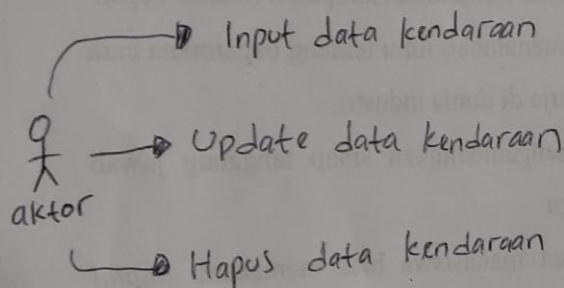 Input data kendaraan
Update data kendaraan
aktor
Hapus data kendaraan